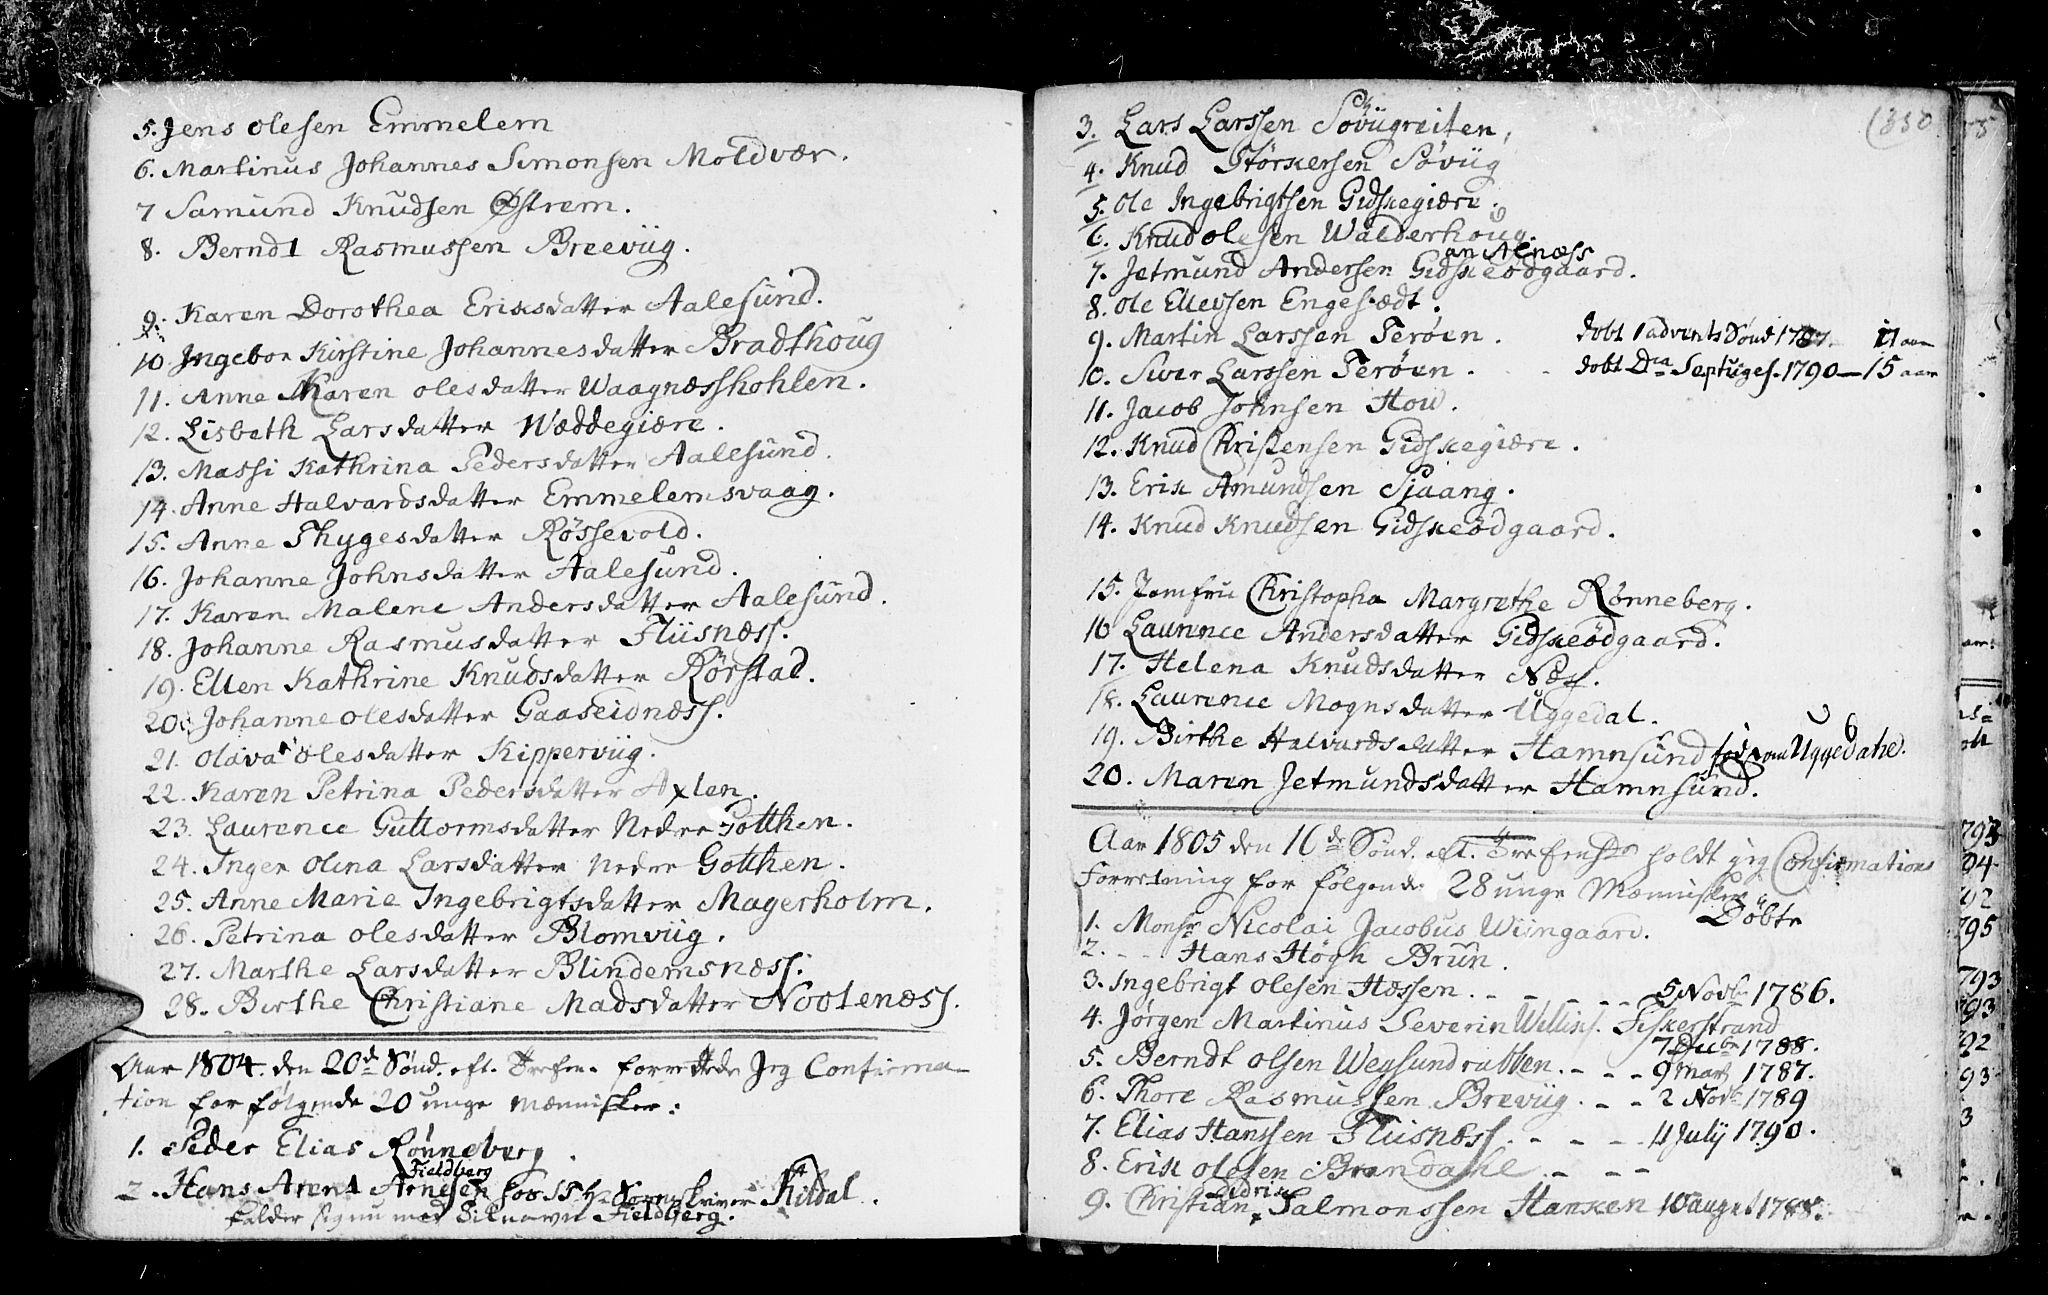 5. Jens Olesen Emmelem
6. Martinus Johannes Simonsen Moldvær.
7 Samund Knudsen Østrem.
8. Berndt Rasmussen Breeviig.
9. Karen Dorothea Eriksdatter Aalesund.
10 Ingebor Kirstine Johannesdatter Bradthoug
11. Anne Karen olesdatter Waagnæsskohlen.
12. Lisbeth Larsdatter Wæddegiære.
13. Massi Kathrina Pedersdatter Aalesund.
14. Anne Halvardsdatter Emmelemsvaag.
15. Anne Thygesdatter Røssevold.
16. Johanne Johnsdatter Aalesund.
17. Karen Malene Andersdatter Aalesund.
18. Johanne Rasmusdatter Fliisnæss.
19. Ellen Kathrine Knudsdatter Rørstad.
20. Johanne olesdatter Gaaseidnæss.
21. Olava olesdatter Kipperviig.
22. Karen Petrina Pedersdatter Axlen.
23. Laurence Guttormsdatter Nedre Gotthen.
24. Inger Olina Larsdatter Nedre Gotthen.
25. Anne Marie Ingebrigtsdatter Magerholm.
26. Petrina olesdatter Blomviig.
27. Marthe Larsdatter Blindemsnæss.
28. Birthe Christiane Madsdatter Nootenæss.
Aar 1804. den 20de Sønd. eft. Trefen. forrettede Jeg Confirma-
tion for følgende 20 unge Mennisker:
1. Peder Elias Rønneberg.
Fieldberg
2. Hans Arent Arnesen hos Hr Sorenskriver Kildal.
kalder sig nu med Tilnavn Fieldberg.
(330
3. Lars Larssen Søviigreiten,
4. Knud Størkersen Søviig
5. Ole Ingebrigtsen Gidskegiære.
6. Knud olesen Walderhoug.
an Alnæss
7. Jetmund Andersen Gidskeødgaard.
8. Ole Ellevsen Engesædt.
9. Martin Larssen Terøen. døbt 1 advents Sønd 1787. 17 aar
10. Siver Larssen Terøen. døbt Dca Septuges. 1790 - 15 aar
11. Jacob Johnsen How.
12. Knud Christensen Gidskegiære.
13. Erik Amundsen Sjaang.
14. Knud Knudsen Gidskeødgaard.
15. Jomfru Christopha Margrethe Rønneberg.
16 Laurence Andersdatter Gidskeødgaard.
17. Helena Knudsdatter Næss.
18. Laurence Mognsdatter Uggedal.
19. Birthe Halvardsdatter Hamnsund fød paa Uggedahl.
20. Maren Jetmundsdatter Hamnsund.
Aar 1805 den 16de Sønd. eft. Trefensdr holdt jeg Confirmations
Forretning for følgende 28 unge Mennisker
Døbte
1. Monsr Nicolai Jacobus Wiingaard.
2. - - Hans Høgh Brun.
3. Ingebrigt Olesen Hæssen. - - - - 5 Novbr 1786.
4. Jørgen Martinus Severin Willus. Fiskerstrand
7 Decbr 1788.
5. Berndt olsen Wegsundrabben. - - - 9 Mars 1787.
6. Thore Rasmussen Breviig. - - 2 Novbr 1789
7. Elias Hanssen Fliisnæss. - - - 11 July 1790.
8. Erik olesen Brandahl. - - -
Didrik
9. Christian Salmonssen Hanken 10 august 1788.